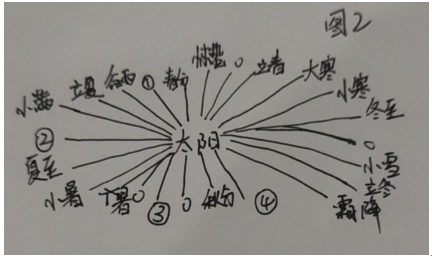 图2
惊蛰 0 立春 大寒
小满 立夏 谷雨 ① 春分 小寒
冬至
② 太阳 0
夏至 小雪
小暑 大暑 0 ③ 0 秋分 ④ 立冬
霜降